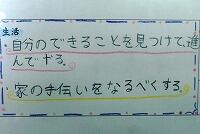 生活
・自分のできることを見つけて、進
んでやる。
家の手伝いをなるべくする。